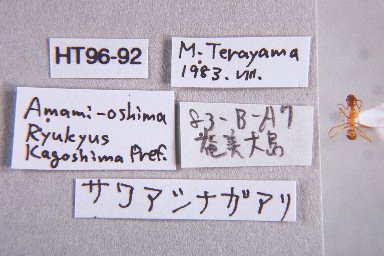 HT96-92
M. Terayama
1983. VIII.
Amami-oshima
Ryukyus
Kagoshima Pref.
83-B-A7
奄美大島
サワアシナガアリ